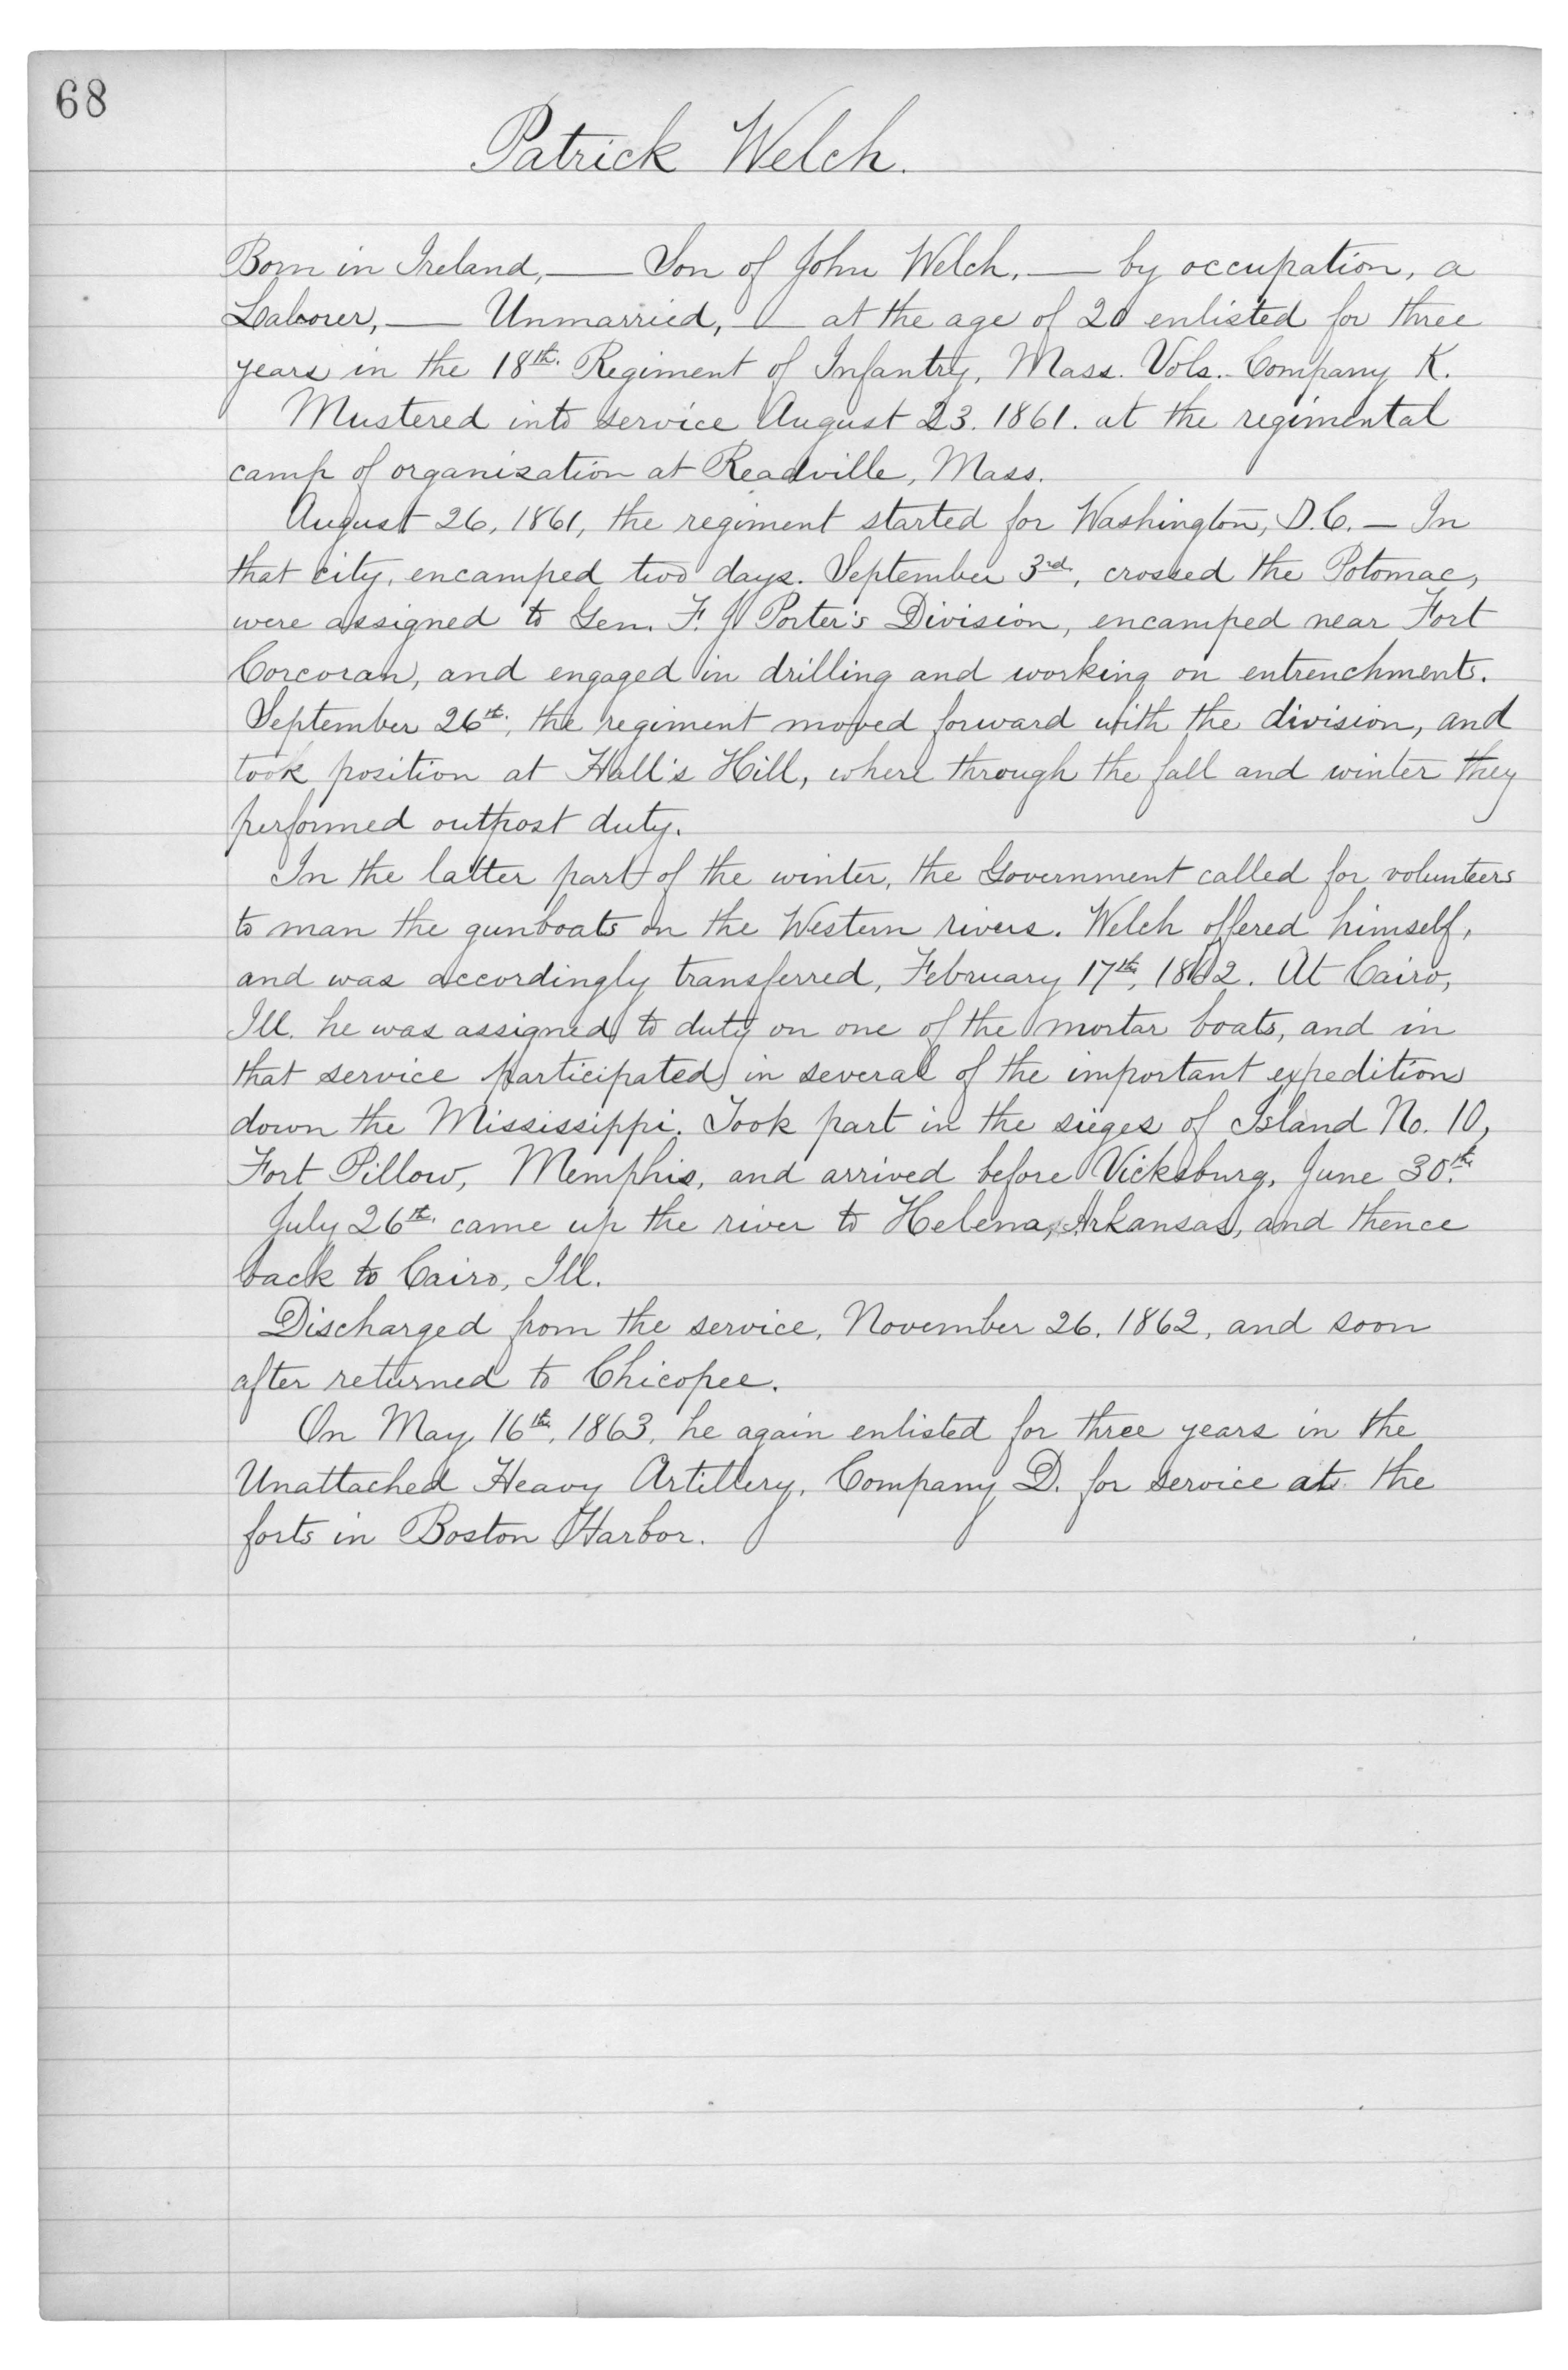 68
Patrick Welch.
Born in Ireland, — Son of John Welch, — by occupation, a
Laborer, — Unmarried, — at the age of 20 enlisted for three
years in the 18th. Regiment of Infantry, Mass. Vols. Company K.
Mustered into service August 23. 1861. at the regimental
camp of organization at Readville, Mass.
August 26, 1861, the regiment started for Washington, D.C. — In
that city, encamped two days. September 3rd, crossed the Potomac,
were assigned to Gen. F. J. Porter's Division, encamped near Fort
Corcoran, and engaged in drilling and working on entrenchments.
September 26th, the regiment moved forward with the division, and
took position at Hall's Hill, where through the fall and winter they
performed outpost duty.
In the latter part of the winter, the Government called for volunteers
to man the gunboats on the Western rivers. Welch offered himself,
and was accordingly transferred, February 17th, 1862. At Cairo,
Ill. he was assigned to duty on one of the mortar boats, and in
that service participated in several of the important expeditions
down the Mississippi. Took part in the sieges of Island No. 10,
Fort Pillow, Memphis, and arrived before Vicksburg, June 30th.
July 26th. came up the river to Helena, Arkansas, and thence
back to Cairo, Ill.
Discharged from the service, November 26. 1862, and soon
after returned to Chicopee.
On May 16th, 1863, he again enlisted for three years in the
Unattached Heavy Artillery, Company D. for service at the
forts in Boston Harbor.